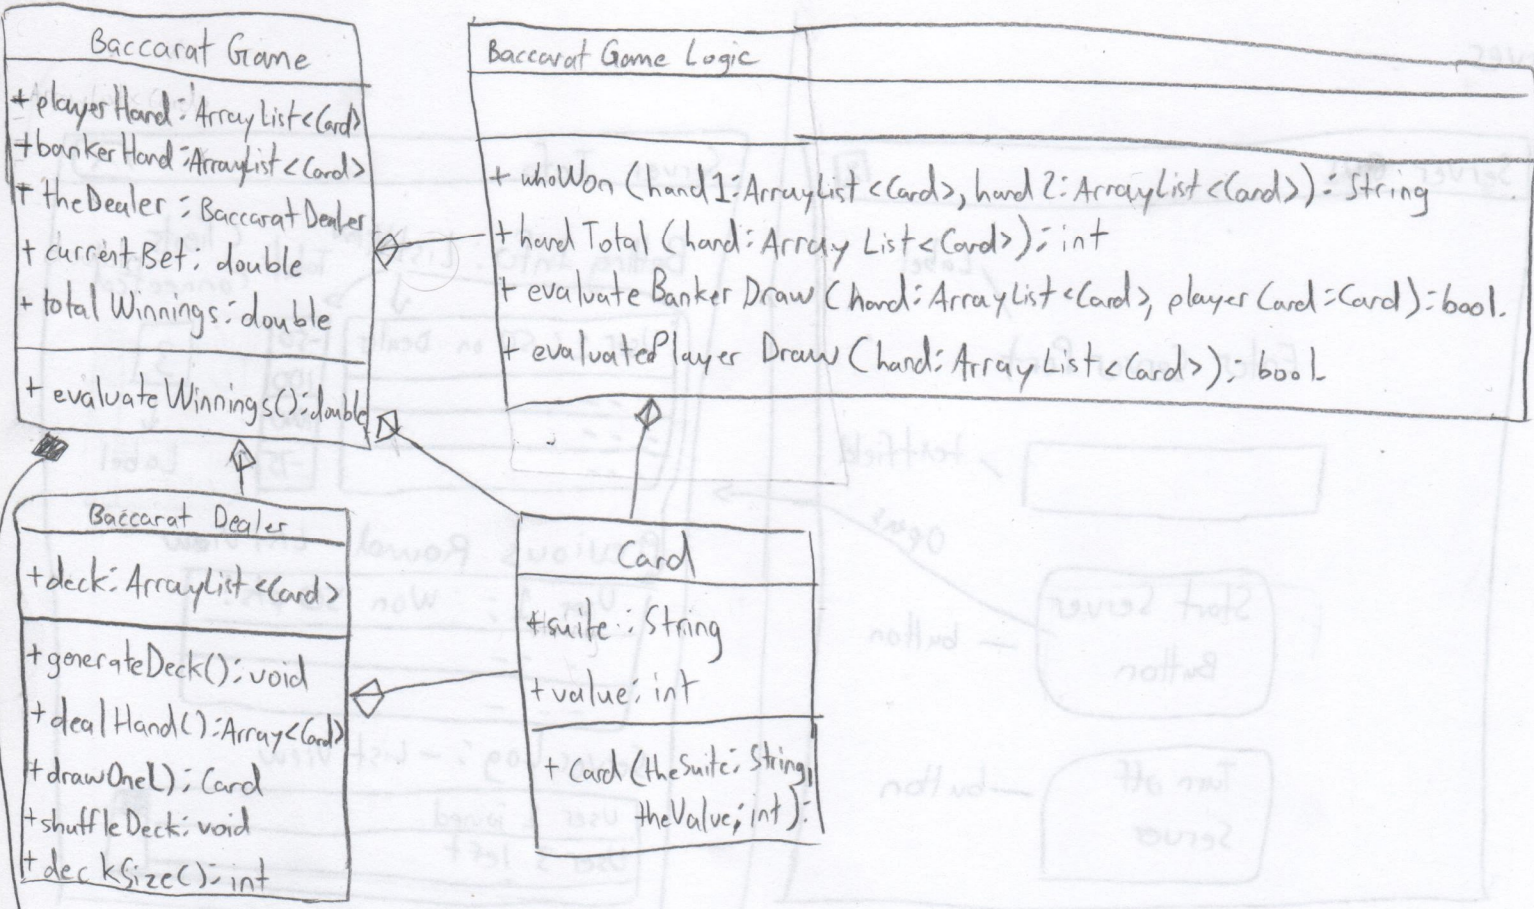 Baccarat Game
+ playerHand: ArrayList<Card>
+ bankerHand: ArrayList<Card>
+ theDealer: BaccaratDealer
+ currentBet: double
+ totalWinnings: double
+ evaluateWinnings(): double
Baccarat Game Logic
+ whoWon (hand1: ArrayList<Card>, hand2: ArrayList<Card>): String
+ handTotal (hand: Array List<Card>): int
+ evaluate Banker Draw (hand: ArrayList<Card>, playerCard: Card): bool.
+ evaluatePlayer Draw (hand: ArrayList<Card>): bool
Baccarat Dealer
+ deck: ArrayList<Card>
+ generateDeck(): void
+ dealHand(): Array<Card>
+ drawOne(): Card
+ shuffleDeck: void
+ deckSize(): int
Card
+ suite: String
+ value: int
+ Card (theSuite: String,
theValue: int):